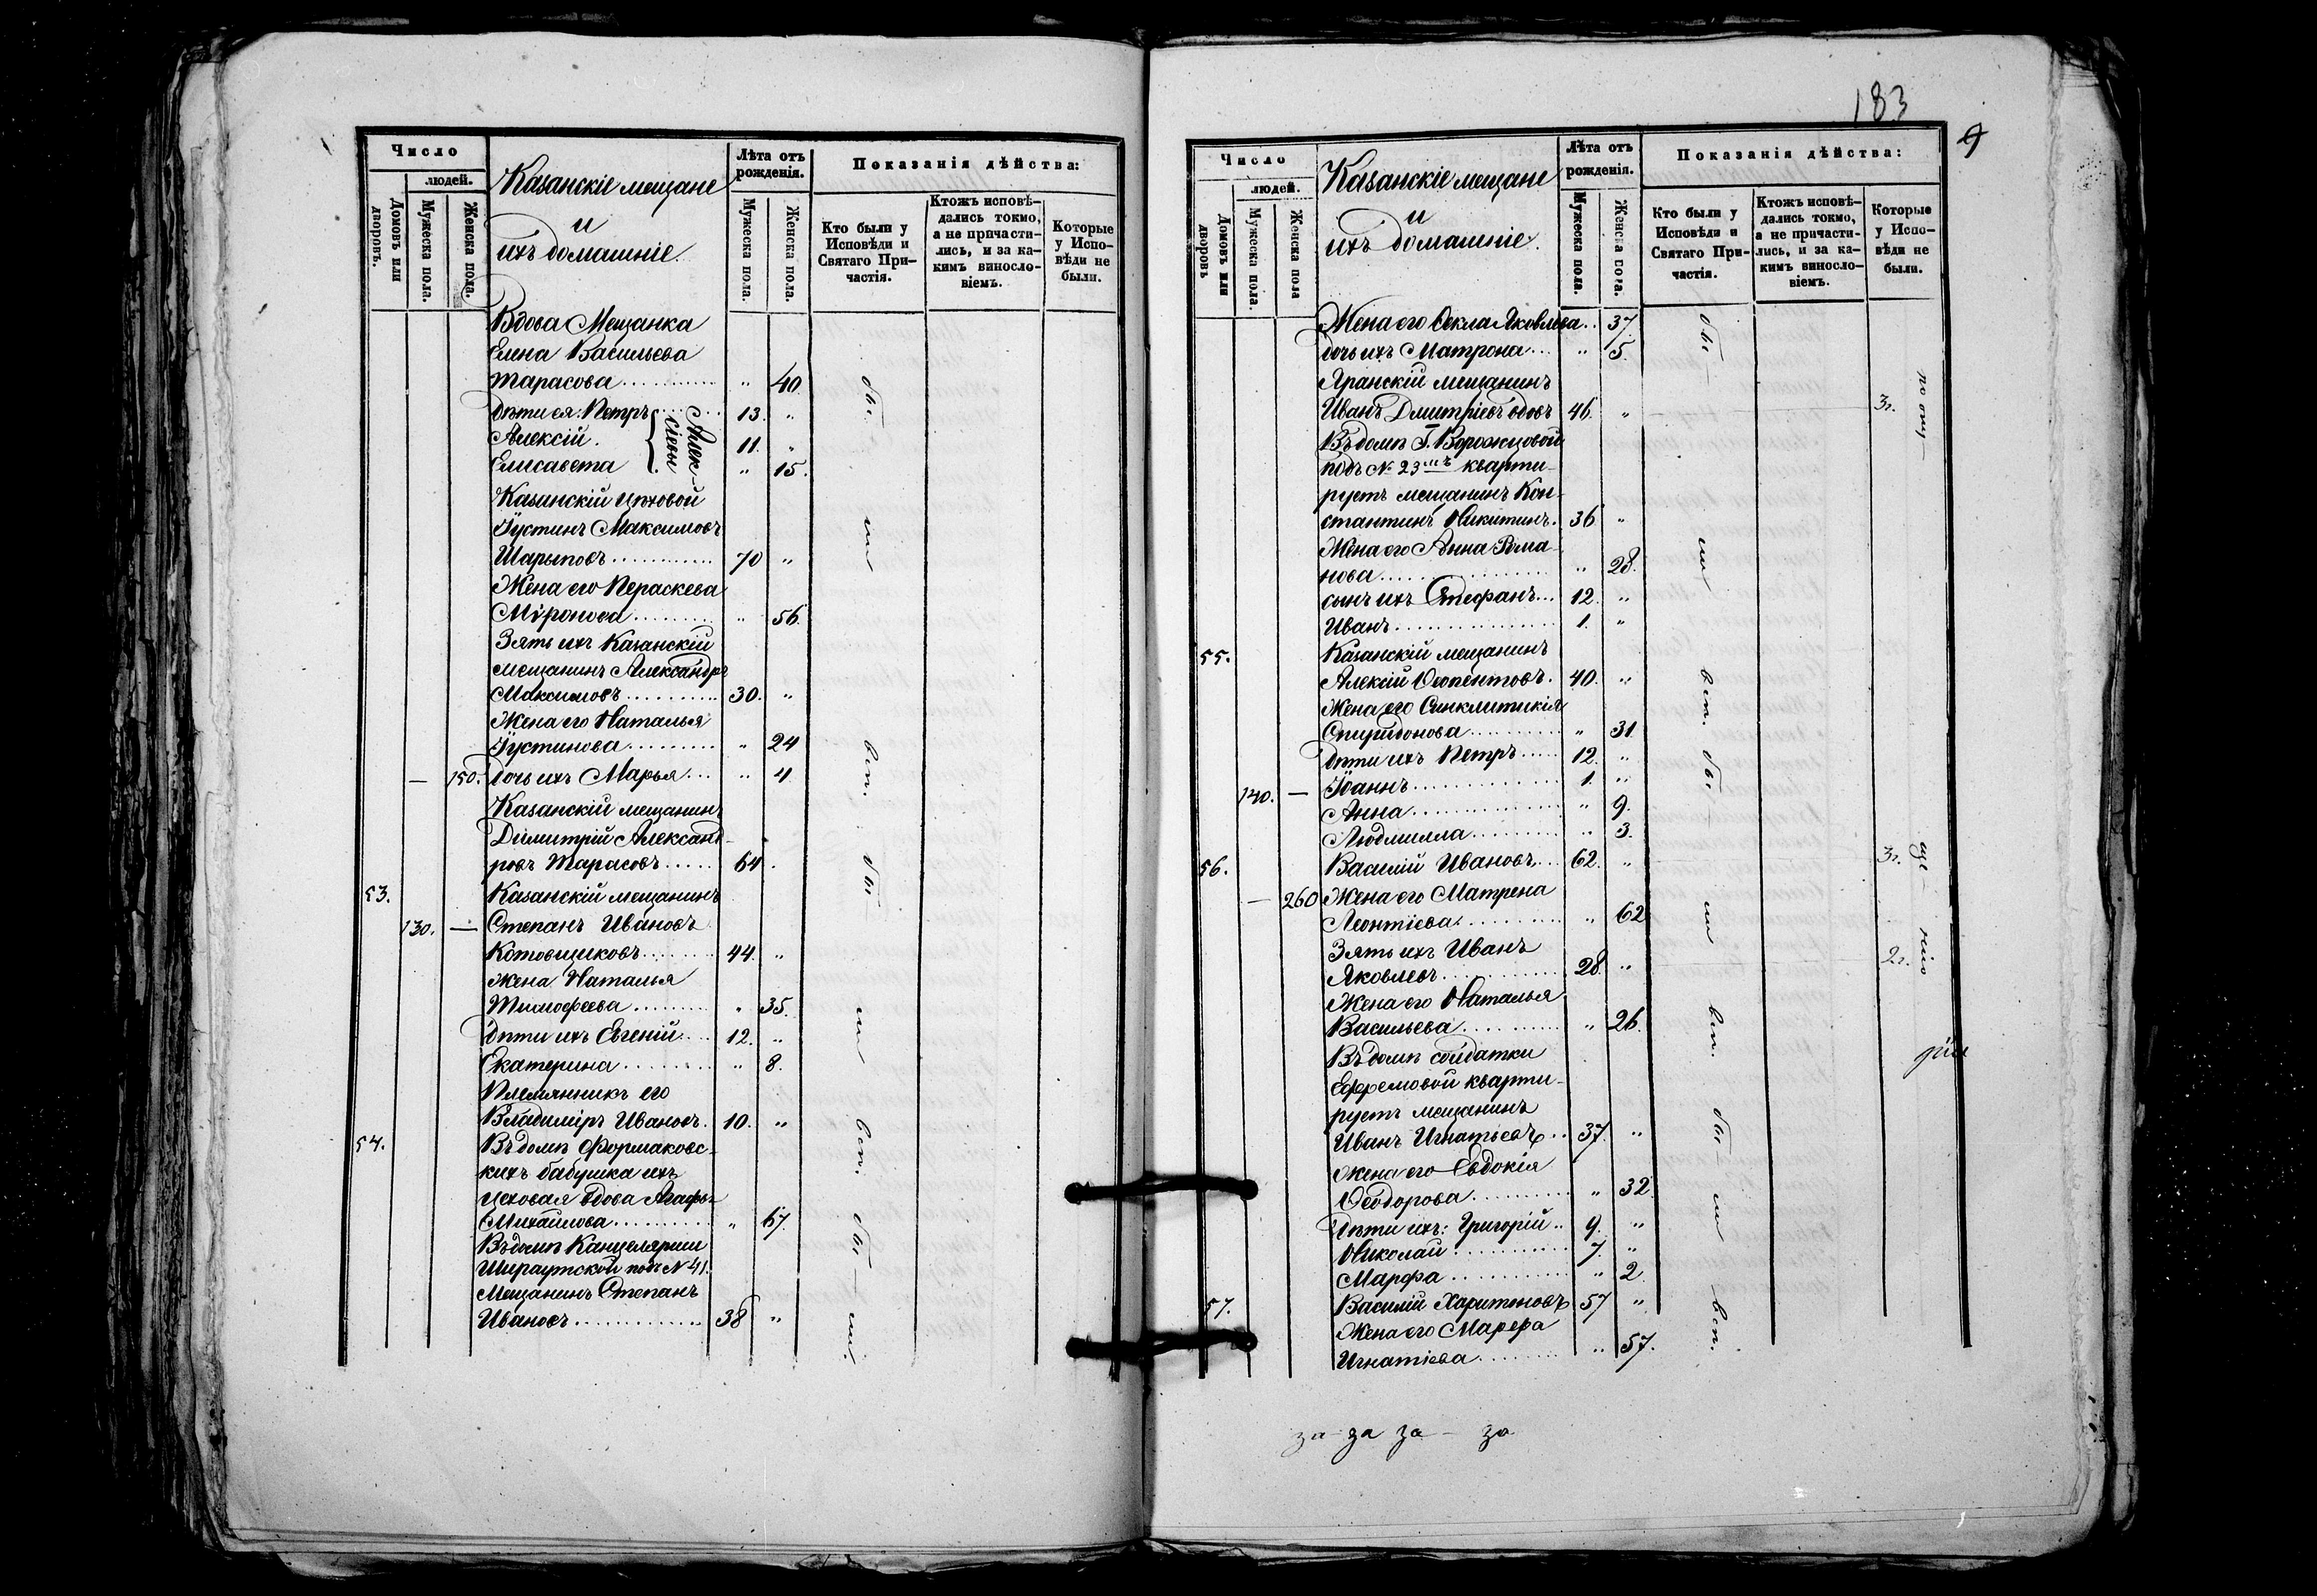 183
9
Число
людей.
Домовъ или дворовъ.
Мужеска пола.
Женска пола.
Казанскіе мещане
и
ихъ домашніе.
Лѣта отъ рожденія.
Мужеска пола.
Женска пола.
Показанія дѣйства:
Кто были у Исповѣди и Святаго Причастія.
Ктожъ исповѣдались токмо, а не причастились, и за какимъ винословіемъ.
Которые у Исповѣди не были.
Вдова Мещанка
Елена Васильева
Тарасова " 40
Дѣти ея: Петръ 13. "
Алексій. 11. "
Елисавета " 15.
Алексіевы
Казанскій цѣховой
Іустинъ Максимовъ
Шарыповъ 70 "
Жена его Пераскева
Миронова " 56.
Зять ихъ Казанскій
мещанинъ Александръ
Максимовъ 30. "
Жена его Наталья
Іустинова " 24
— 150. Дочь ихъ Марья " 4
Казанскій мещанинъ
Димитрій Александ-
ровъ Тарасовъ 64.
53. Казанскій мещанинъ
130. — Степанъ Ивановъ
Котовщиковъ 44. "
Жена Наталья
Тимофеева " 35.
Дѣти ихъ Евгеній 12. "
Екатерина " 8.
Племянникъ его
Владиміръ Ивановъ. 10. "
54. Въ домѣ Формаковс-
кихъ бабушка ихъ
цеховая вдова Агафья
Михайлова " 67.
Въ домѣ Канцелярши
подъ № 41.
Мещанинъ Степанъ
Ивановъ 38 "
бы-
ли
вси.
бы-
ли
вси.
бы-
ли
Число
людей.
Домовъ или дворовъ
Мужеска пола
Женска пола
Казанскіе мещане
и
ихъ домашніе.
Лѣта отъ рожденія.
Мужеска пола.
Женска пола.
Показанія дѣйства:
Кто были у Исповѣди и Святаго Причастія.
Ктожъ исповѣдались токмо, а не причастились, и за какимъ винословіемъ.
Которые у Исповѣди не были.
Жена его Ѳекла Яковлева 37.
дочь ихъ Матрона " 5.
Яранскій мещанинъ
Иванъ Дмитріевъ вдовъ 46. " 3г.
Въ домѣ Г. Ворожцовой
подъ № 23мъ кварти-
руетъ мещанинъ Кон-
стантинъ Никитинъ. 36 "
Жена его Анна Рома-
нова " 28.
сынъ ихъ Стефанъ 12. "
Иванъ 1. "
55. Казанскій мещанинъ
Алексій Ѳеопентовъ. 40. "
Жена его Синклитикія
Спиридонова " 31
Дѣти ихъ Петръ 12. "
140. — Іоаннъ 1. "
Анна " 9.
Людмилла " 3.
56. Василій Ивановъ 62. " 3г.
— 260 Жена его Матрена
Леонтіева " 62
Зять ихъ Иванъ
Яковлевъ 28. " 2г.
Жена его Наталья
Васильева " 26.
Въ домѣ солдатки
Ефремовой кварти-
руетъ мещанинъ
Иванъ Игнатьевъ 37. "
Жена его Евдокія
Ѳеодорова " 32.
Дѣти ихъ: Григорій 9. "
Николай 7. "
Марфа " 2
57. Василій Харитоновъ 57 "
Жена его Марфа
Игнатіева " 57.
бы-
ли
вси.
бы-
ли
вси.
бы-
ли
вси.
по опу-
ще-
нію
за за за - за